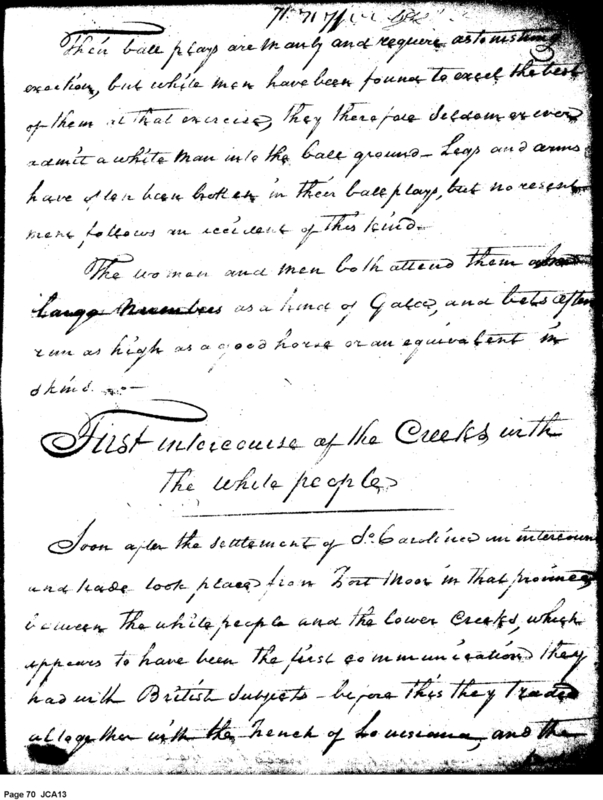 71 71 71
Their ball plays are manly and require astonishing
exertion, but white men have been found to excel the best
of them at that exercise, they therefore seldom or ever
admit a white man into the ball ground — Legs and arms
have often been broken in their ball plays, but no resent
ment follows an accident of this kind.
The women and men both attend them
large numbers as a kind of Gala, and bets often
run as high as a good horse or an equivalent in
skins. —
First intercourse of the Creeks with
the white people
Soon after the settlement of So. Carolina an intercourse
and trade took place from Fort Moor in that province
between the white people and the lower Creeks, which
appears to have been the first communication they
had with British Subjects — before this they traded
altogether with the French of Louisiana, and the
Page 70 JCA13